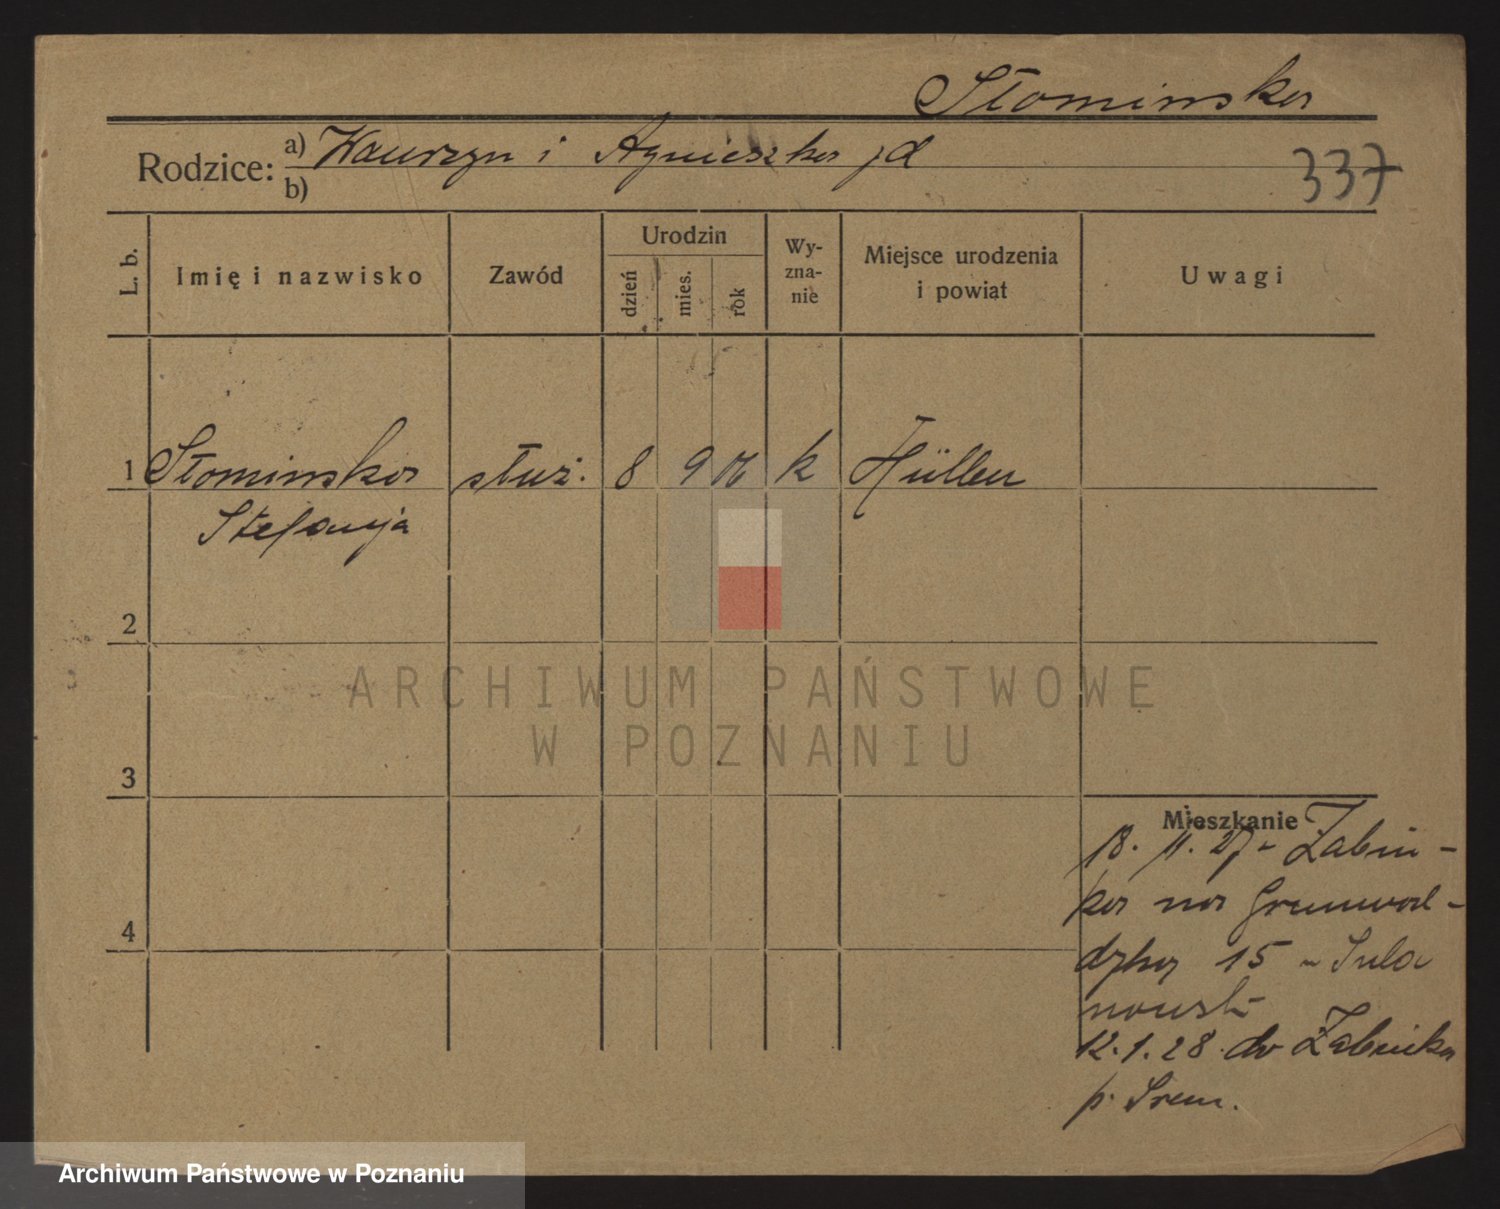 Słominska
Rodzice: a) Wawrzyn i Agnieszka jd
b)
337
L. b.
Imię i nazwisko
Zawód
Urodzin
dzień
mies.
rok
Wy-
zna-
nie
Miejsce urodzenia
i powiat
Uwagi
1 Słominska służ. 8 9 06 k Hüllen
Stefanja
2
3
4
ARCHIWUM PAŃSTWOWE
W POZNANIU
Mieszkanie
18. 11. 27 - Żabin-
ka na Grunwal-
dzką 15 - Sula
nowski
12.1.28. do Żabinka
p. Śrem.
Archiwum Państwowe w Poznaniu